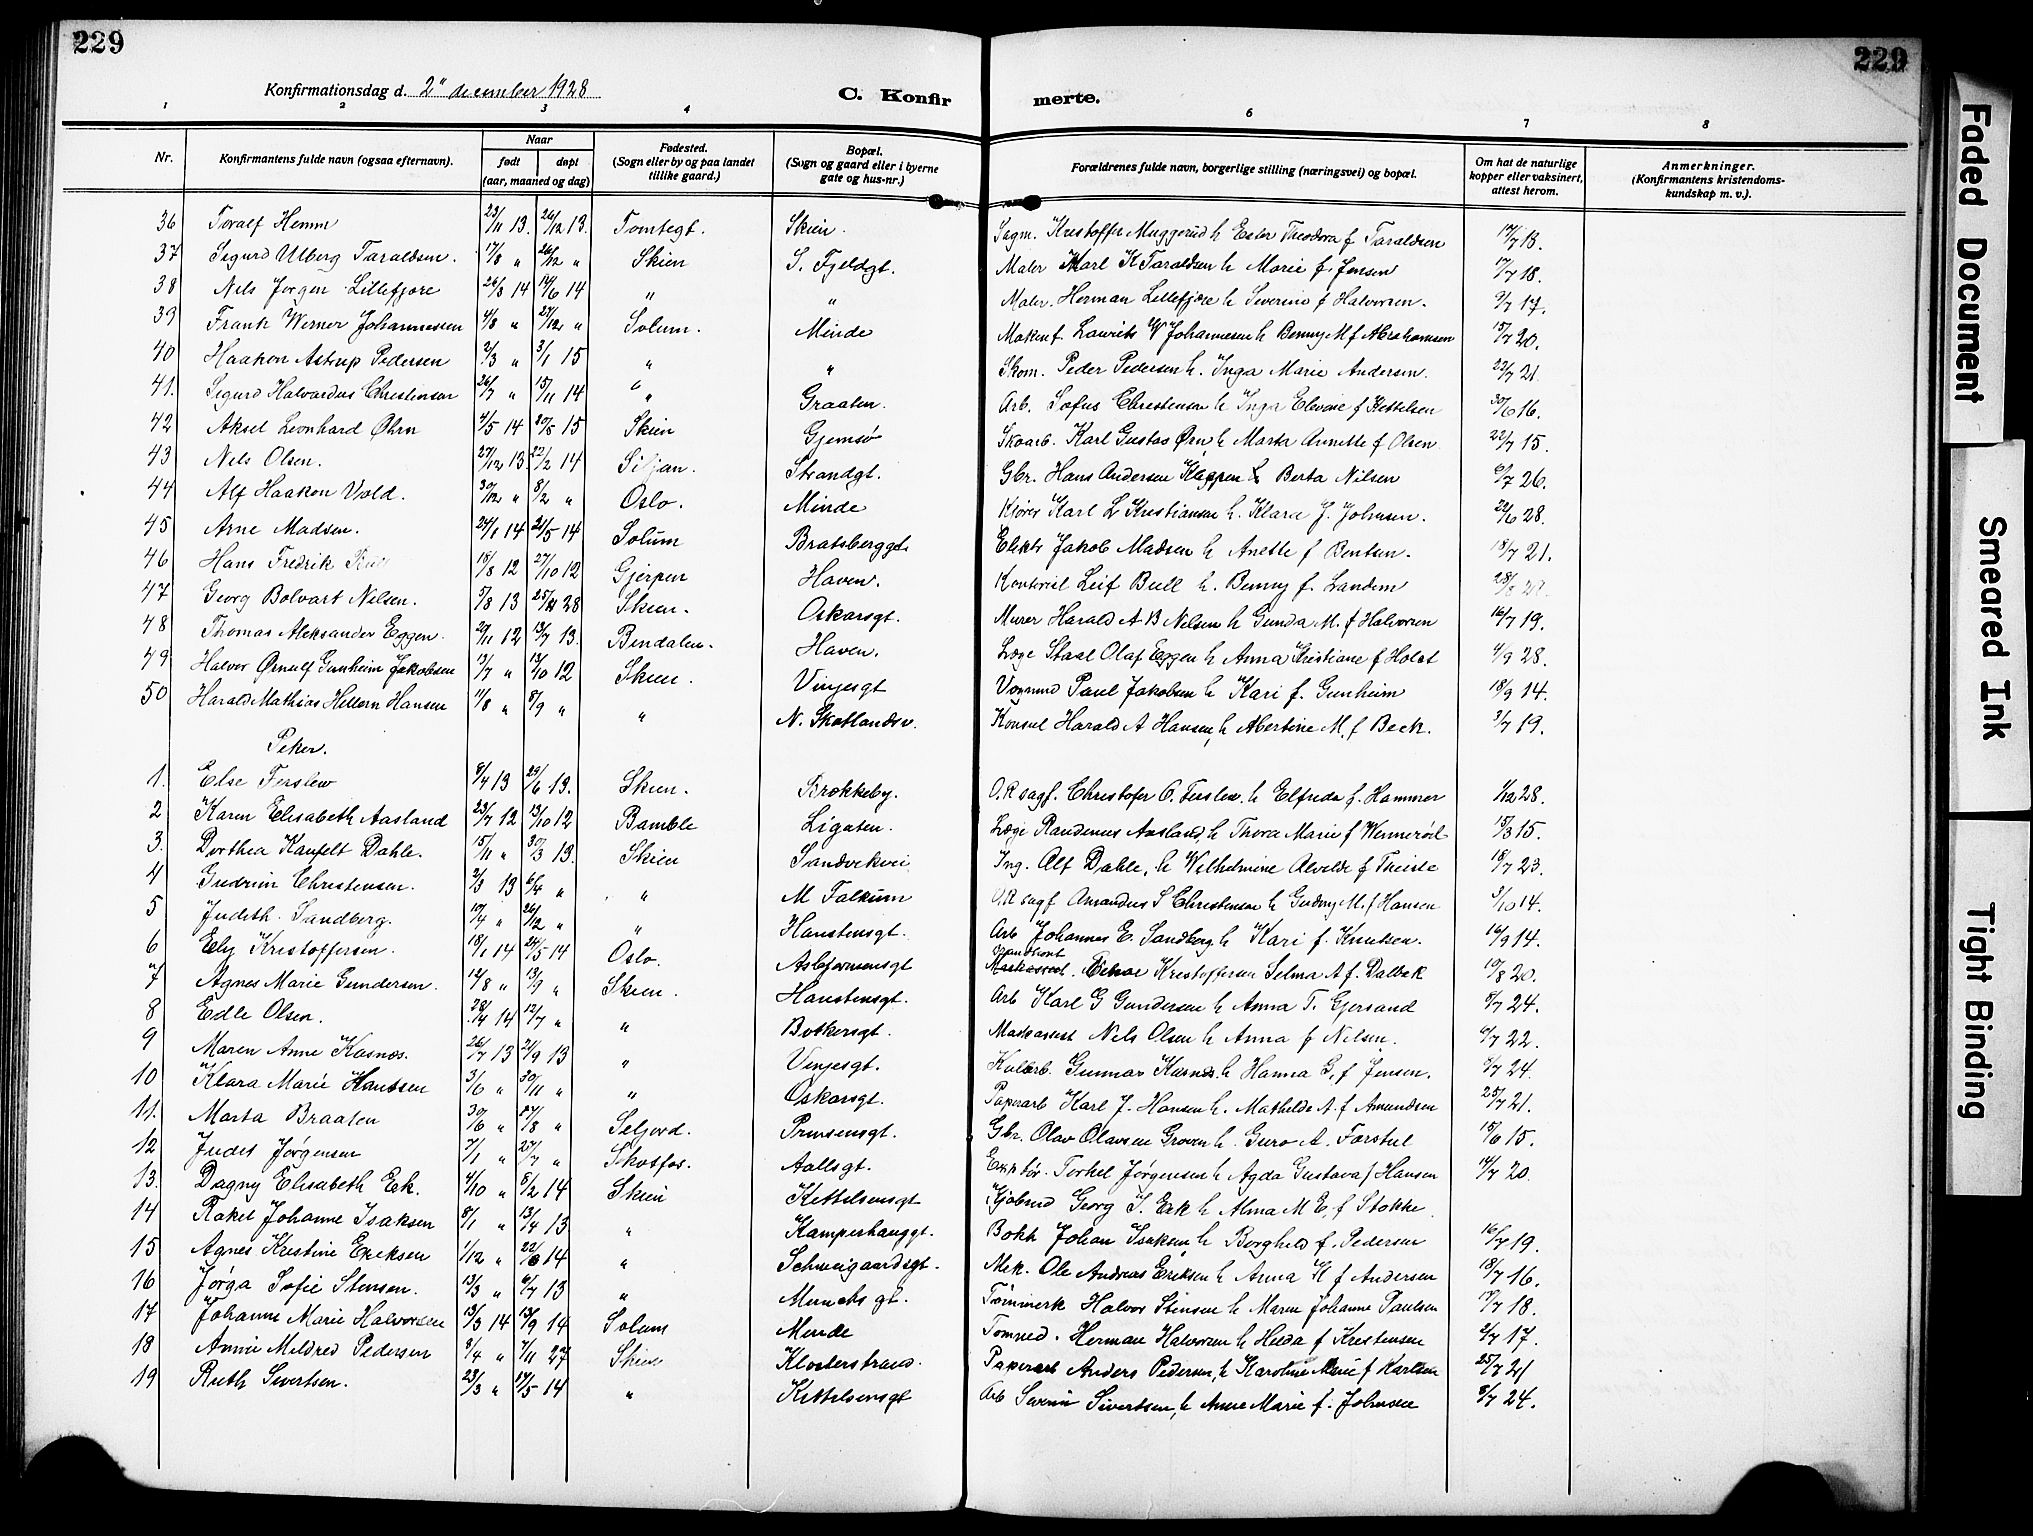 229
229
Konfirmationsdag d. 2" december 1928
C. Konfir merte.
1 2 3 4 6 7 8
Nr. Konfirmantens fulde navn (ogsaa efternavn). Naar født døpt (aar, maaned og dag) Fødested. (Sogn eller by og paa landet tillike gaard.) Bopæl. (Sogn og gaard eller i byerne gate og hus-nr.) Forældrenes fulde navn, borgerlige stilling (næringsvei) og bopæl. Om hat de naturlige kopper eller vaksinert, attest herom. Anmerkninger. (Konfirmantens kristendomskundskap m. v.).
36 Toralf Hemm 23/11 13. 26/12 13. Tomtegt. Skien. Sagm. Kristoffer Muggerud h Ester Theodora f Taraldsen 17/7 13.
37 Sigurd Ulberg Taraldsen. 17/8 " 26/12 " Skien S. Fjeldgt. Maler Karl K Taraldsen h Marie f. Jensen 17/7 18.
38 Nils Jørgen Lillefjære 26/3 14 14/6 14 " " Maler. Herman Lillefjære h Severine f Halvorsen. 9/7 17.
39 Frank Werner Johannesen 4/8 " 27/12 " Solum. Minde Lauritz W Johannesen h Benny M f Abrahamsen 15/7 20.
40 Haakon Astrup Pedersen 2/3 " 3/1 15 " " Skom. Peder Pedersen h. Inga Marie Andersen. 22/7 21.
41. Sigurd Halvardus Christensen 26/7 " 15/11 14 " Graaten. Arb. Sofus Christensen h Inga f Kettelsen 30/6 16.
42 Aksel Leonhard Ørn 4/5 14 20/5 15 Skien Gjemsø Skoarb. Karl Gustav Ørn, h Marta Annette f Olsen 22/7 15.
43 Nels Olsen. 27/12 13. 22/2 14 Siljan. Strandgt. Gbr. Hans Andersen Kleppen h Berta Nilsen 6/7 26.
44 Alf Haakon Vold. 30/12 " 8/2 " Oslo. Minde Karl L Kristiansen h. Klara J. Johnsen. 22/6 28.
45 Arne Madsen. 24/1 14 21/5 14 Solum Bratsberggt. Elektr Jakob Madsen h Anette f Bentsen. 18/7 21.
46 Hans Fredrik 18/8 12 27/10 12 Gjerpen Haven. Leif Bull h. Benny f. Landem
47 Georg Bolvart Nilsen. 5/8 13 25/11 28 Skien. Oskarsgt. Murer Harald A B Nilsen h Gunda M. f Halvorsen 16/7 19.
48 Thomas Aleksander Eggen. 29/11 12 13/7 13. Bindalen. Haven. Læge Staal Olaf Eggen h Anna Kristiane f Holst 4/9 28.
49 Halvor Ørnulf Gunheim Jakobsen 13/7 " 13/10 12 Skien. Vinjesgt Vognmd Paul Jakobsen h Kari f. Gunheim 18/9 14.
50 Harald Mathias Hellern Hansen 11/8 " 8/9 " " N. Skotlandsv. Konsul Harald A Hansen, h Albertine M. f Beck. 3/7 19.
Peker.
1. Else Ferslew 8/4 13 29/6 13. Skien. Brekkeby. O.R sagf. Christofer C. Ferslew. h Elfrida f. Hammer 1/12 28.
2 Karen Elisabeth Aasland 23/7 12 13/10 12 Bamble Ligaten. Læge Randenus Aasland, h Thora Marie f Wennerød 15/3 15.
3. Dorthea Kaufelt Dahle. 15/11 " 30/3 13. Skien Sandvekvei Ing. Alf Dahle, h Wilhelmine Alvilde f Theiste 18/7 23.
4 Gudrun Christensen. 2/3 13 6/4 " " M Falkum O.R sagf Amandus S Christensen h Gudny M. f Hansen 3/10 14.
5 Judith Sandberg. 10/4 " 26/12 " " Hanstensgt. Arb Johannes E. Sandberg h Kari f. Knutsen. 16/9 14.
6 Ely Kristoffersen. 18/1 14 24/5 14 Oslo. Asbjørnsensgt Kristoffersen Selma A f. Dalbak 10/8 20.
7 Agnes Marie Gundersen. 14/8 " 13/9 " Skien. Hanstensgt. Arb Karl G Gundersen h Anna T. Gjersand 8/7 24.
8 Edle Olsen. 28/4 14 12/7 " " Bøtkersgt. Nels Olsen h Anna f Nilsen. 6/7 22.
9 Maren Anne Kasnæs. 26/7 13 21/9 13 " Vinjesgt. Gunnar Kasnæs. h Hanna G. f Jensen. 8/7 24.
10 Klara Marie Hanssen 3/6 " 30/11 " " Oskarsgt. Papirarb Karl J. Hansen h. Mathilde A. f Amundsen 25/7 21.
11. Marta Braaten 30/6 " 27/8 " Seljord. Prinsensgt. Gbr. Olav Olavsen Groven h. Guro A. Førstul 15/6 15.
12 Judit Jørgensen 7/1 " 27/7 " Skotfos. Aallsgt. Torkel Jørgensen h Agda Gustava f Hansen 14/7 20.
13. Dagny Elisabeth Eck. 4/10 " 8/2 14 Skien Kittelsensgt Kjøbmd Georg S. Eck h Alma M E, f Stokke.
14 Rakel Johanne Isaksen 8/1 " 13/4 13 " Kamperhauggt. Bokh Johan Isaksen h Borghild f. Pedersen 16/7 19.
15 Agnes Kristine Eriksen 1/12 " 22/6 14 " Schweigaardsgt. Mek. Ole Andreas Eriksen h Anna K f Andersen 18/7 16.
16 Jørga Sofie Stensen. 13/3 " 6/7 13 " Munchs gt. Tømmerk Halvor Stensen h Maren Johanne Paulsen 17/7 18.
17 Johanne Marie Halvorsen 13/3 14 13/9 14 Solum Minde Herman Halvorsen h Hilda f Kristensen 2/7 17.
18 Annie Mildred Pedersen 3/4 " 7/11 27 Skien Klosterstrand. Papirarb Anders Pedersen, h Karoline Marie f Karlsen 25/7 21
19 Ruth Sivertsen. 23/3 " 17/5 14 " Kittelsensgt Arb Severin Sivertsen, h Anne Marie f. Johnsen 8/7 24.
Faded Document
Smeared Ink
Tight Binding